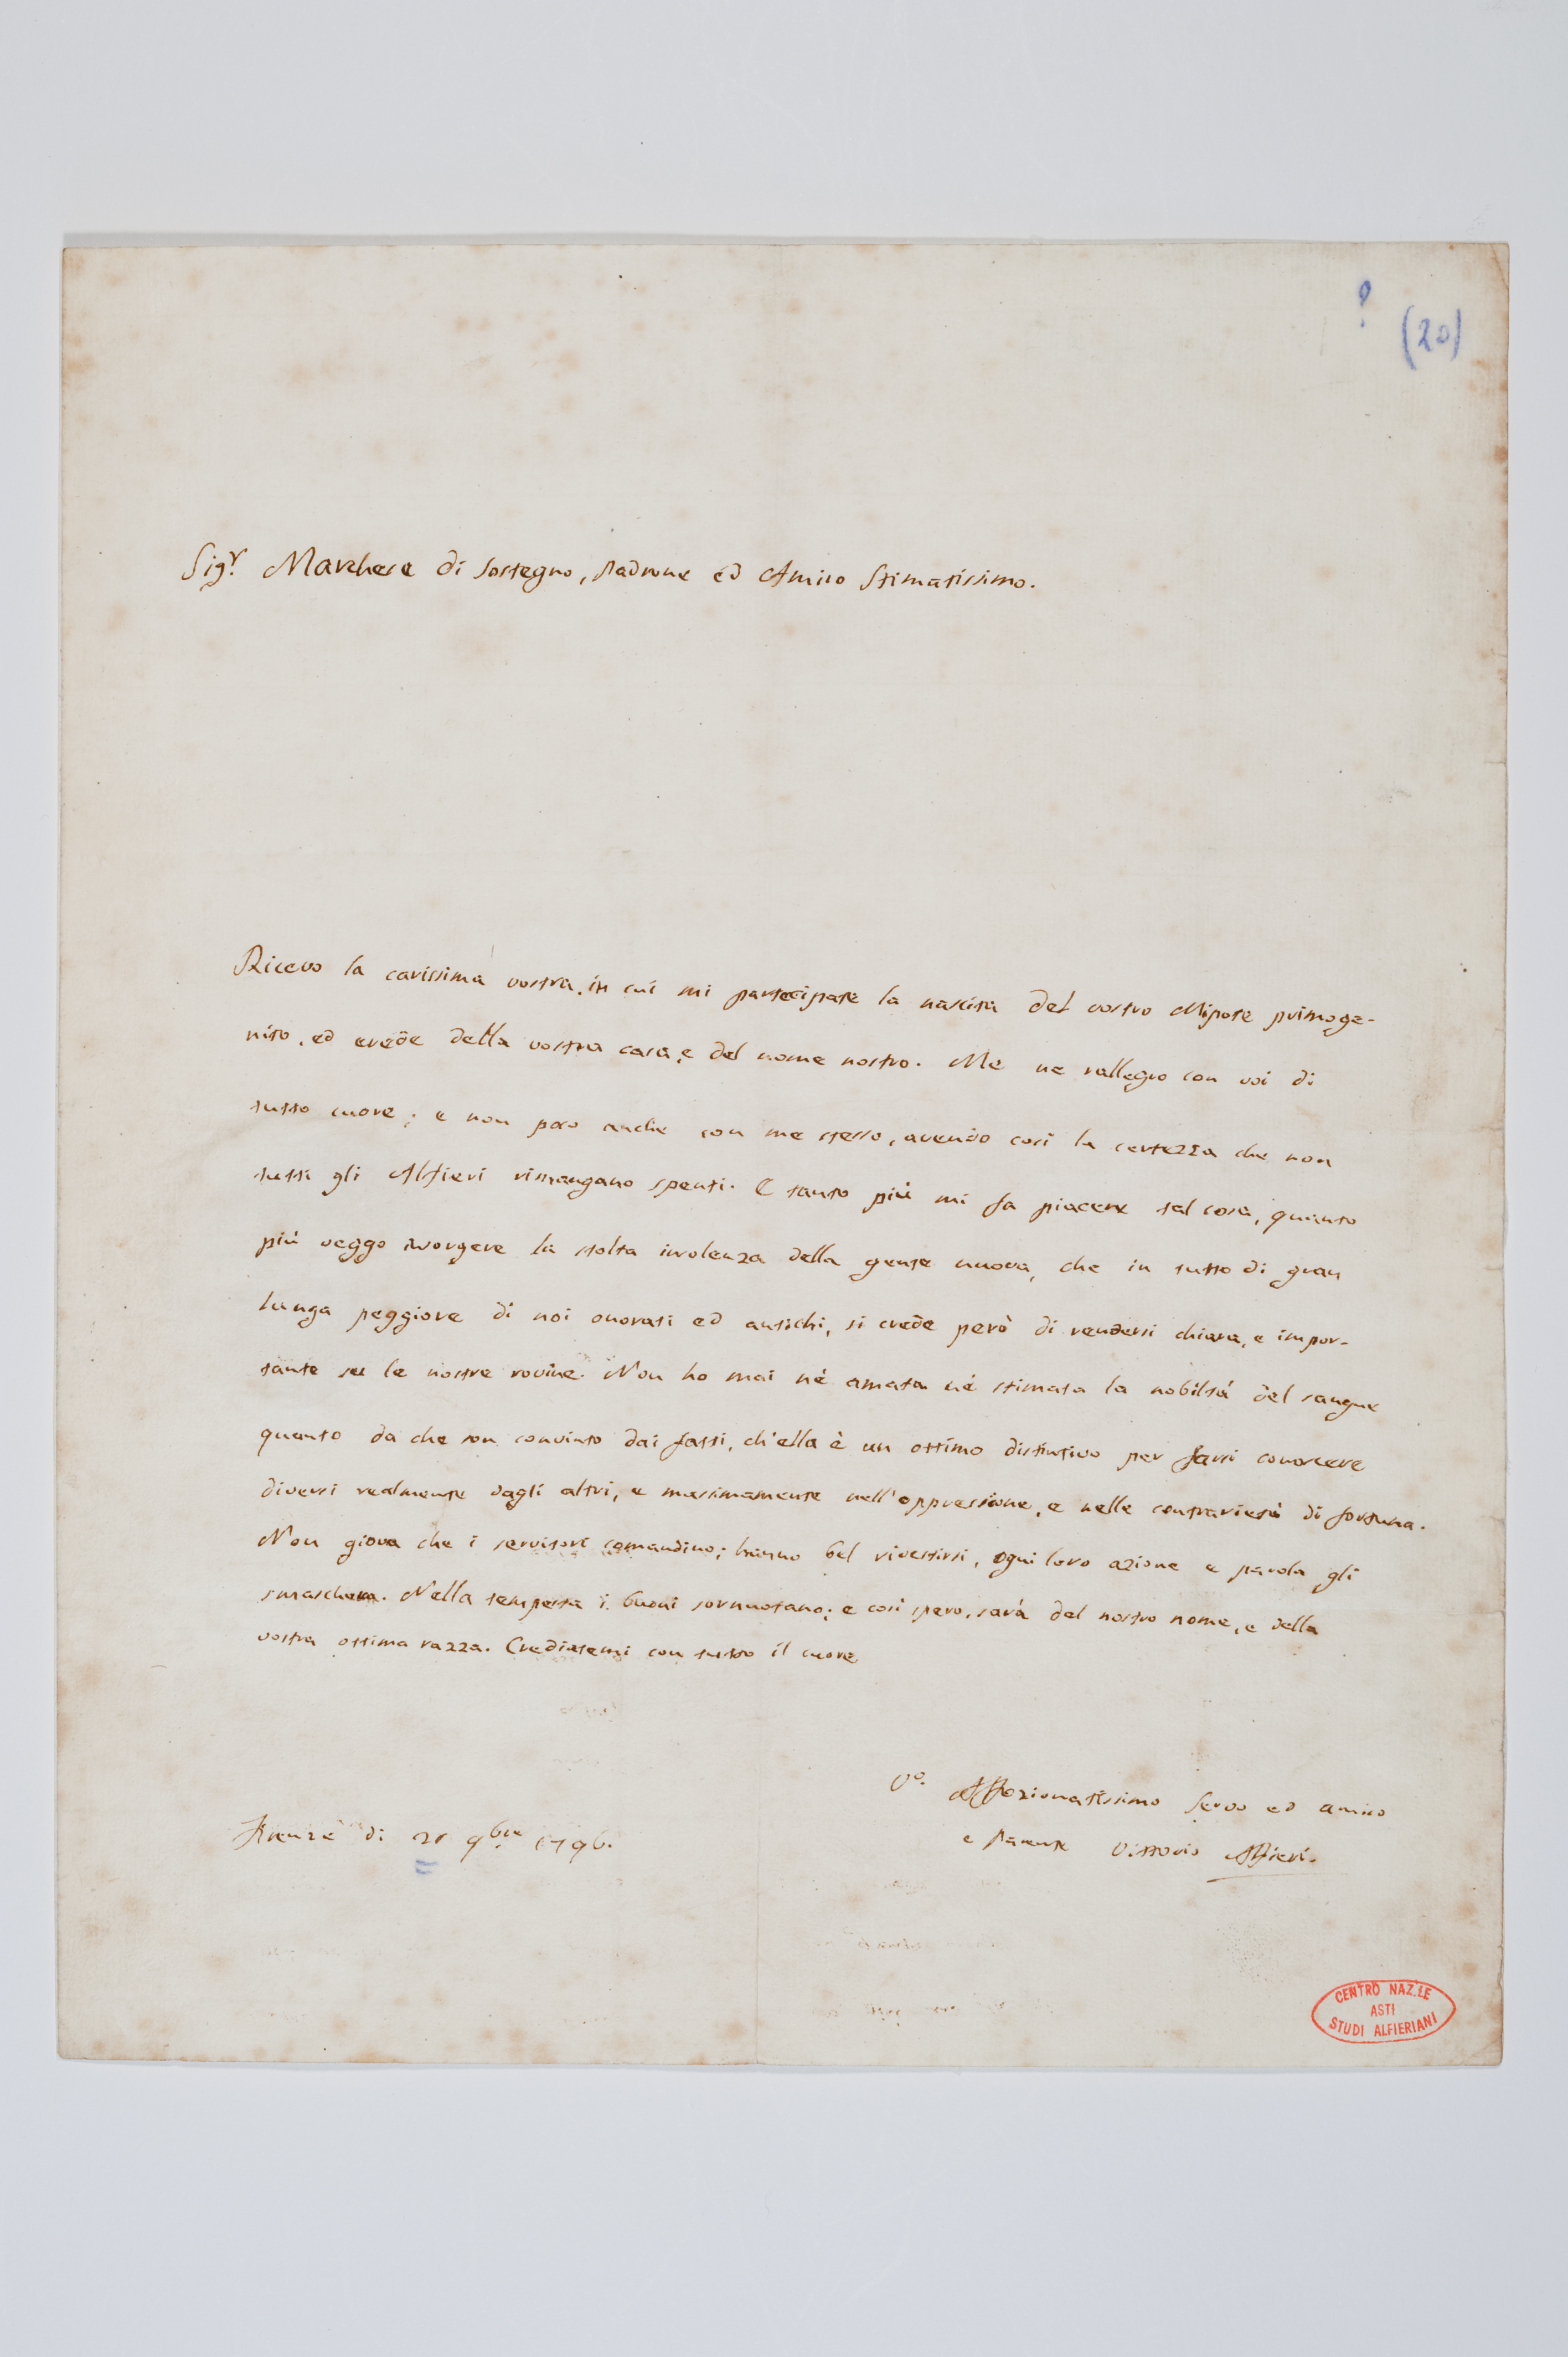 ?
(20)
Sig.r Marchese di Sostegno, Padrone ed Amico Stimatissimo.
Ricevo la carissima vostra, in cui mi partecipate la nascita del vostro Nipote primoge-
nito, ed erede della vostra casa, e del nome nostro. Me ne rallegro con voi di
tutto cuore; e non poco anche con me stesso, avendo così la certezza che non
tutti gli Alfieri rimangano spenti. E tanto più mi fa piacere tal cosa, quanto
più veggo insorgere la stolta insolenza della gente nuova, che in tutto di gran
lunga peggiore di noi onorati ed antichi, si crede però di rendersi chiara, e impor-
tante su le nostre rovine. Non ho mai né amata né stimata la nobiltà del sangue
quanto da che son convinto dai fatti, ch'ella è un ottimo distintivo per farsi conoscere
diversi realmente dagli altri, e massimamente nell'oppressione, e nelle contrarietà di fortuna.
Non giova che i servitori comandino; hanno bel rivestirsi, ogni loro azione e parola gli
smaschera. Nella tempesta i buoni sornuotano; e così spero, sarà del nostro nome, e della
vostra ottima razza. Crediatemi con tutto il cuore
Vo. Affezionatissimo Servo ed amico
e Parente Vittorio Alfieri.
Firenze di 9bre 1796.
CENTRO NAZ.LE
ASTI
STUDI ALFIERIANI